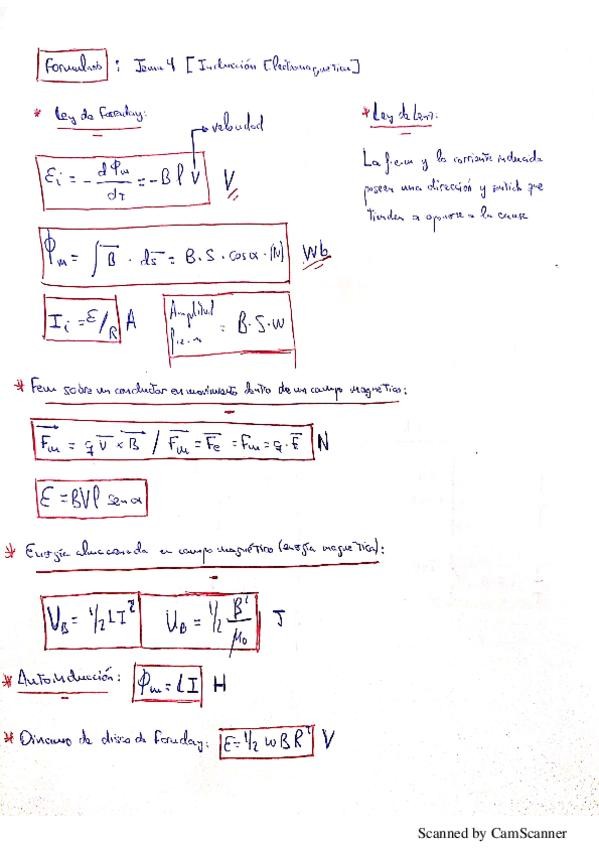 Formulas : Tema 4 [Inducción Electromagnética]
* Ley de Faraday:
velocidad
εi = - dΦm/dt = -B l v V
Φm = ∫ B · ds = B. S. cosα · (N) Wb
Ii = ε/R A
Amplitud
f.e.m = B·S·w
* Ley de Lenz:
La f.e.m y la corriente inducida
poseen una dirección y sentido que
tienden a oponerse a la causa
* Fem sobre un conductor en movimiento dentro de un campo magnético:
Fm = q v × B / Fm = Fe = Fm = q · E N
ε = BVl senα
* Energía almacenada en campo magnético (energía magnética):
UB = 1/2 LI² UB = 1/2 B²/μ0 J
* Autoinducción: Φm = LI H
* Dinamo de disco de Faraday: ε = 1/2 w B R² V
Scanned by CamScanner